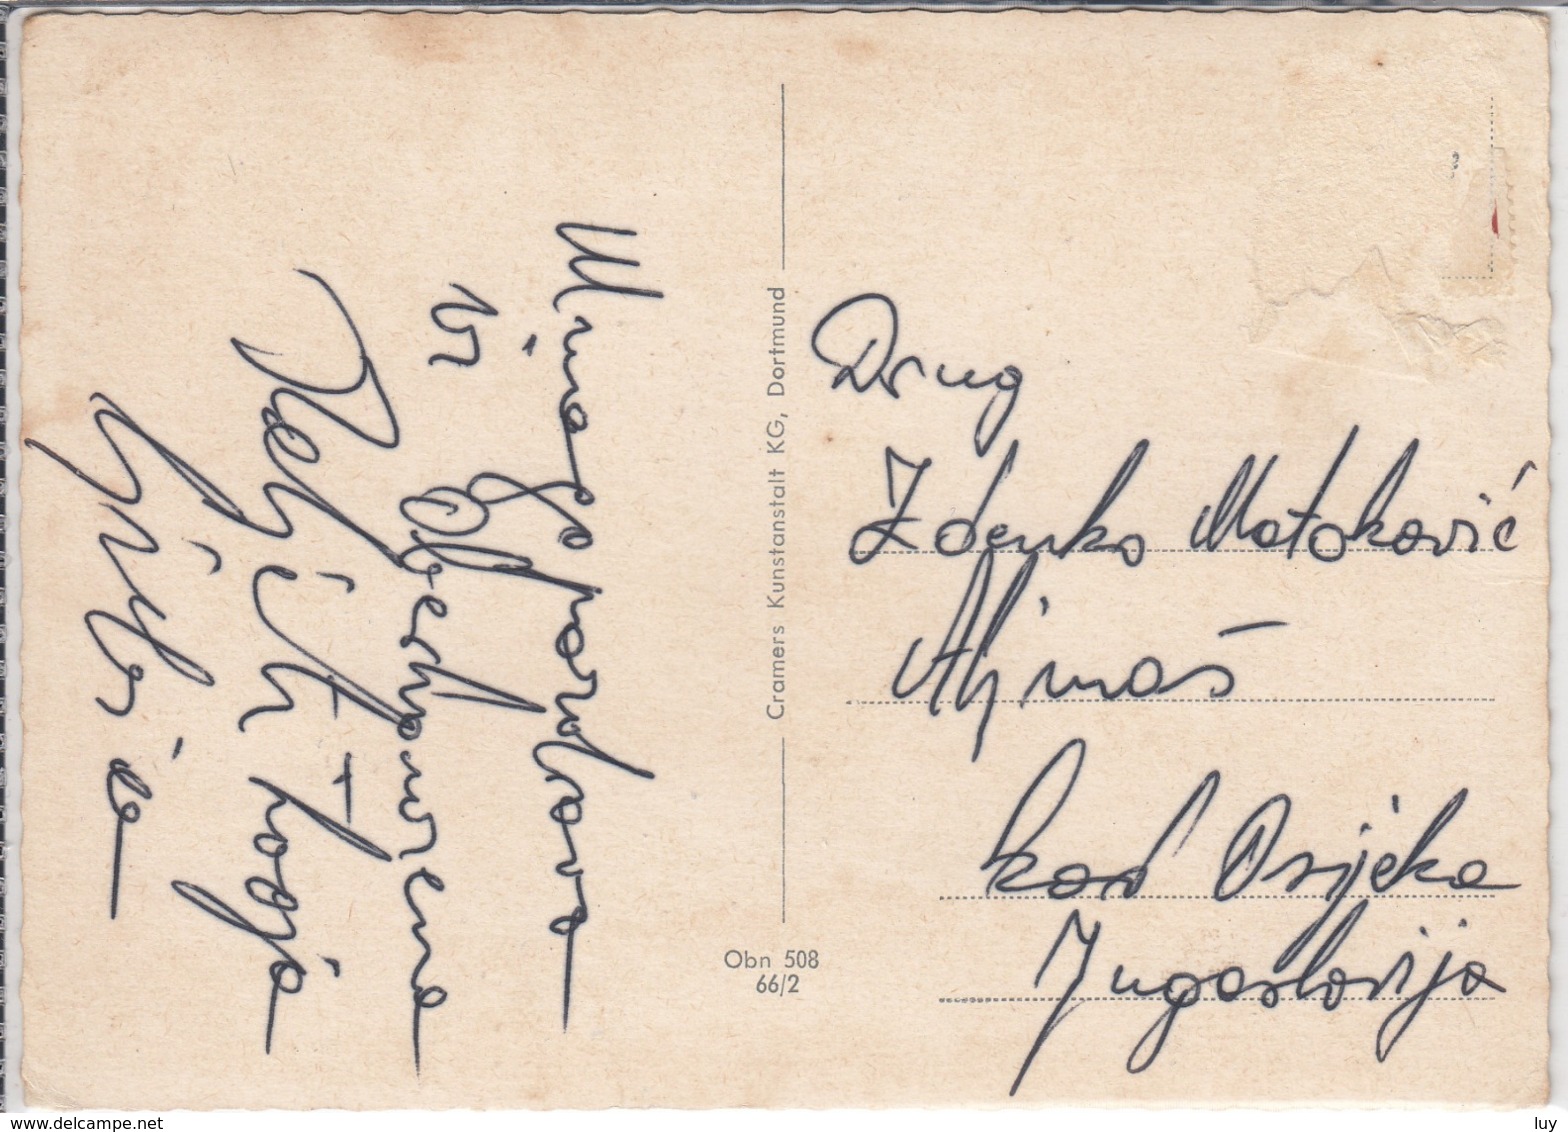 Mnogo pozdrava
iz
Oberhausena
Drug
Zdenko Matoković
Aljmaš
kod Osijeka
Jugoslavija
Cramers Kunstanstalt KG, Dortmund
Obn 508
66/2
www.delcampe.net
luy